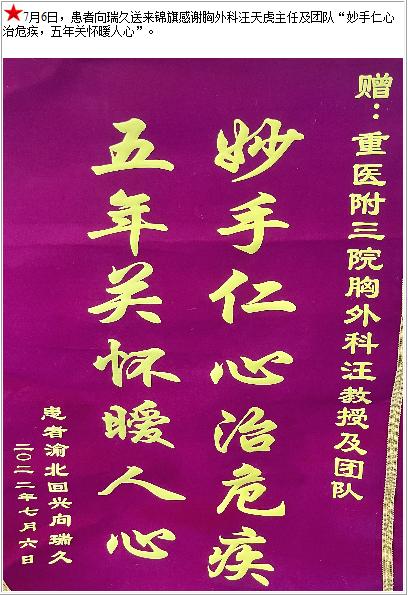 7月6日，患者向瑞久送来锦旗感谢胸外科汪天虎主任及团队“妙手仁心
治危疾，五年关怀暖人心”。
赠：重医附三院胸外科汪教授及团队
妙手仁心治危疾
五年关怀暖人心
患者渝北回兴向瑞久
二〇二二年七月六日